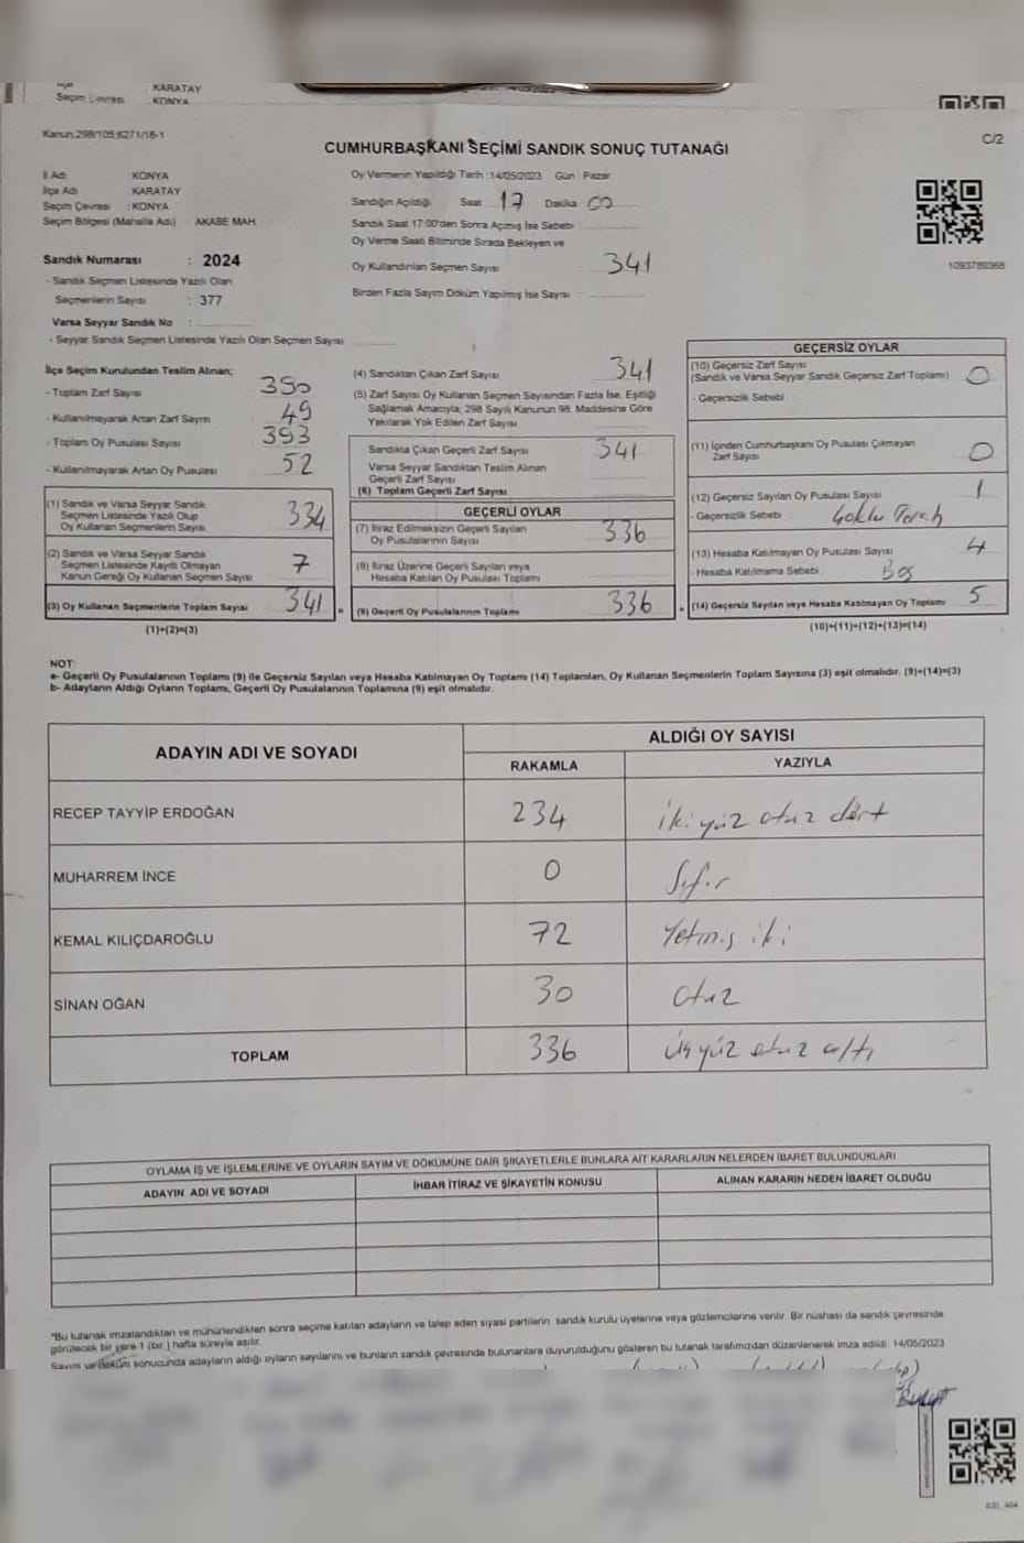 KARATAY
Seçim Çevresi KONYA
Kanun:298/105;6271/16-1
C/2
CUMHURBAŞKANI SEÇİMİ SANDIK SONUÇ TUTANAĞI
İl Adı KONYA
İlçe Adı KARATAY
Seçim Çevresi : KONYA
Seçim Bölgesi (Mahalle Adı) AKABE MAH.
Oy Vermenin Yapıldığı Tarih :14/05/2023 Gün : Pazar
Sandığın Açıldığı Saat 17 Dakika 00
Sandık Saat 17:00'den Sonra Açılmış İse Sebebi :
Oy Verme Saati Bitiminde Sırada Bekleyen ve
Oy Kullandırılan Seçmen Sayısı 341
Birden Fazla Sayım Döküm Yapılmış İse Sayısı :
1093789368
Sandık Numarası : 2024
- Sandık Seçmen Listesinde Yazılı Olan
Seçmenlerin Sayısı : 377
Varsa Seyyar Sandık No :
- Seyyar Sandık Seçmen Listesinde Yazılı Olan Seçmen Sayısı
İlçe Seçim Kurulundan Teslim Alınan;
- Toplam Zarf Sayısı 390
- Kullanılmayarak Artan Zarf Sayısı 49
- Toplam Oy Pusulası Sayısı 393
- Kullanılmayarak Artan Oy Pusulası 52
(1) Sandık ve Varsa Seyyar Sandık
Seçmen Listesinde Yazılı Olup
Oy Kullanan Seçmenlerin Sayısı 334
(2) Sandık ve Varsa Seyyar Sandık
Seçmen Listesinde Kayıtlı Olmayan
Kanun Gereği Oy Kullanan Seçmen Sayısı 7
(3) Oy Kullanan Seçmenlerin Toplam Sayısı 341 =
(1)+(2)=(3)
(4) Sandıktan Çıkan Zarf Sayısı 341
(5) Zarf Sayısı Oy Kullanan Seçmen Sayısından Fazla İse, Eşitliği
Sağlamak Amacıyla, 298 Sayılı Kanunun 98. Maddesine Göre
Yakılarak Yok Edilen Zarf Sayısı
Sandıkta Çıkan Geçerli Zarf Sayısı 341
Varsa Seyyar Sandıktan Teslim Alınan
Geçerli Zarf Sayısı
(6) Toplam Geçerli Zarf Sayısı
GEÇERLİ OYLAR
(7) İtiraz Edilmeksizin Geçerli Sayılan
Oy Pusulalarının Sayısı 336
(8) İtiraz Üzerine Geçerli Sayılan veya
Hesaba Katılan Oy Pusulası Toplamı
(9) Geçerli Oy Pusulalarının Toplamı 336 +
GEÇERSİZ OYLAR
(10) Geçersiz Zarf Sayısı
(Sandık ve Varsa Seyyar Sandık Geçersiz Zarf Toplamı) 0
- Geçersizlik Sebebi
(11) İçinden Cumhurbaşkanı Oy Pusulası Çıkmayan
Zarf Sayısı 0
(12) Geçersiz Sayılan Oy Pusulası Sayısı 1
- Geçersizlik Sebebi Çoklu Tercih
(13) Hesaba Katılmayan Oy Pusulası Sayısı 4
- Hesaba Katılmama Sebebi Boş
(14) Geçersiz Sayılan veya Hesaba Katılmayan Oy Toplamı 5
(10)+(11)+(12)+(13)=(14)
NOT:
a- Geçerli Oy Pusulalarının Toplamı (9) ile Geçersiz Sayılan veya Hesaba Katılmayan Oy Toplamı (14) Toplamları, Oy Kullanan Seçmenlerin Toplam Sayısına (3) eşit olmalıdır. (9)+(14)=(3)
b- Adayların Aldığı Oyların Toplamı, Geçerli Oy Pusulalarının Toplamına (9) eşit olmalıdır.
ADAYIN ADI VE SOYADI
ALDIĞI OY SAYISI
RAKAMLA YAZIYLA
RECEP TAYYİP ERDOĞAN 234 iki yüz otuz dört
MUHARREM İNCE 0 Sıfır
KEMAL KILIÇDAROĞLU 72 Yetmiş iki
SİNAN OĞAN 30 Otuz
TOPLAM 336 üçyüz otuz altı
OYLAMA İŞ VE İŞLEMLERİNE VE OYLARIN SAYIM VE DÖKÜMÜNE DAİR ŞİKAYETLERLE BUNLARA AİT KARARLARIN NELERDEN İBARET BULUNDUKLARI
ADAYIN ADI VE SOYADI İHBAR İTİRAZ VE ŞİKAYETİN KONUSU ALINAN KARARIN NEDEN İBARET OLDUĞU
*Bu tutanak imzalandıktan ve mühürlendikten sonra seçime katılan adayların ve talep eden siyasi partilerin sandık kurulu üyelerine veya gözlemcilerine verilir. Bir nüshası da sandık çevresinde
görülecek bir yere 1 (bir) hafta süreyle asılır.
Sayım ve döküm sonucunda adayların aldığı oyların sayılarını ve bunların sandık çevresinde bulunanlara duyurulduğunu gösteren bu tutanak tarafımızdan düzenlenerek imza edildi. 14/05/2023